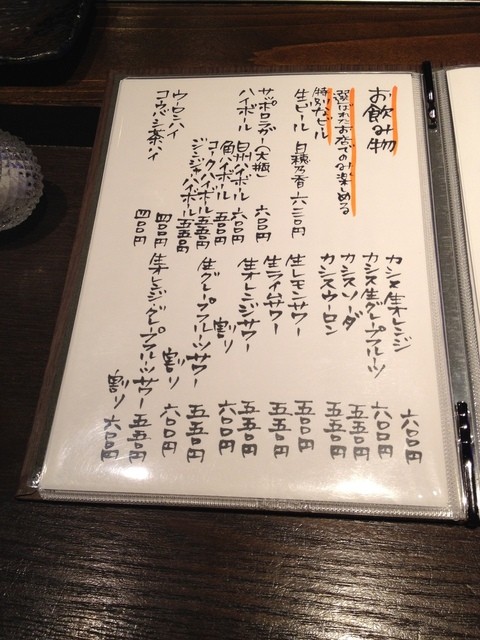 お飲み物
選ばれたお店でのみ楽しめる
特別なビール
生ビール 白穂乃香 六三〇円
サッポロラガー(大瓶) 六〇〇円
ハイボール 白州ハイボール 六〇〇円
角ハイボール 五〇〇円
コークハイボール 五五〇円
ジンジャーハイボール 五五〇円
ウーロンハイ 四〇〇円
コウバシ茶ハイ 四〇〇円
カシス生オレンジ 六〇〇円
カシス生グレープフルーツ 六〇〇円
カシスソーダ 五五〇円
カシスウーロン 五五〇円
生レモンサワー 五〇〇円
生ライムサワー 五五〇円
生オレンジサワー 五五〇円
割り 六〇〇円
生グレープフルーツサワー 五五〇円
割り 六〇〇円
生オレンジグレープフルーツサワー 五五〇円
割り 六〇〇円